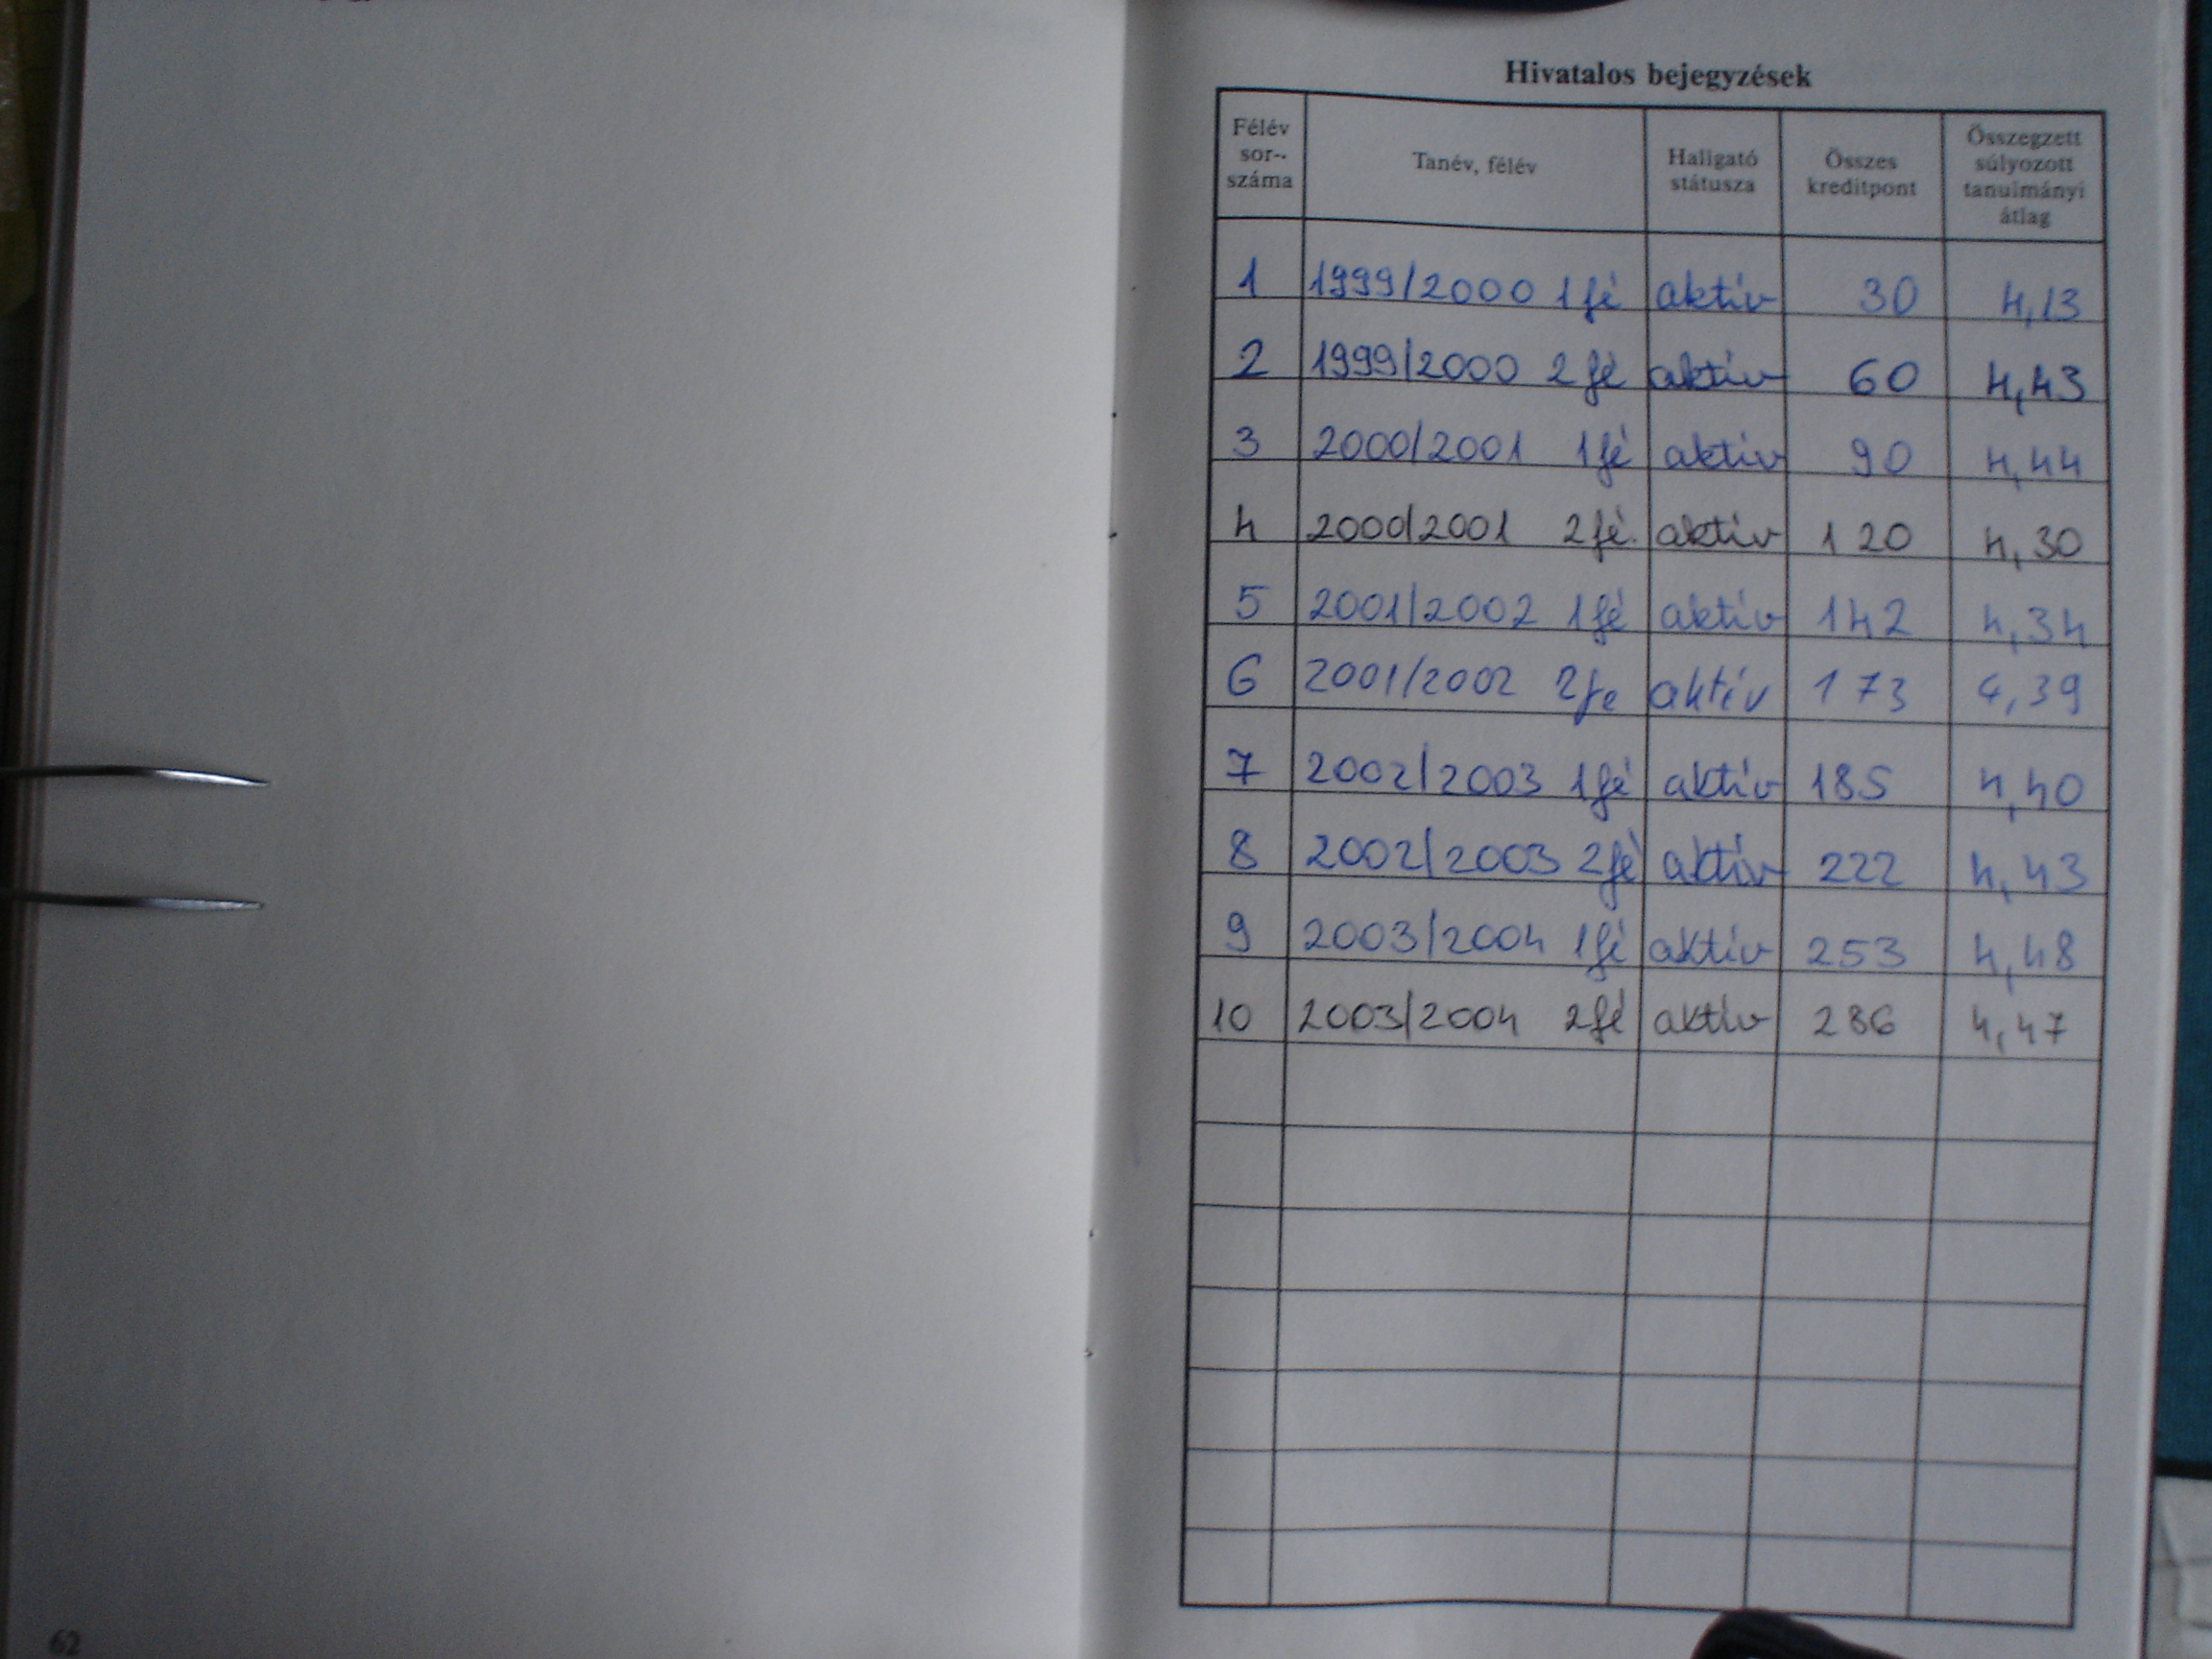 Hivatalos bejegyzések
Félév sor-- száma Tanév, félév Hallgató státusza Összes kreditpont Összegzett súlyozott tanulmányi átlag
1 1999/2000 1fé aktív 30 4,13
2 1999/2000 2fé aktív 60 4,43
3 2000/2001 1fé aktív 90 4,44
4 2000/2001 2fé. aktív 120 4,30
5 2001/2002 1fé aktív 142 4,34
6 2001/2002 2fe aktív 173 4,39
7 2002/2003 1fé aktív 185 4,40
8 2002/2003 2fé aktív 222 4,43
9 2003/2004 1fé aktív 253 4,48
10 2003/2004 2fé aktív 286 4,47
62